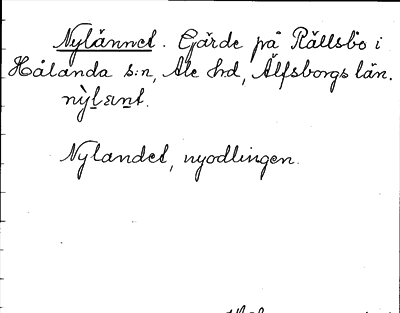 Nylännet. Gärde på Rällsbo i
Hålanda s:n, Ale hd, Älfsborgs län.
nỳlænt.
Nylandet, nyodlingen.